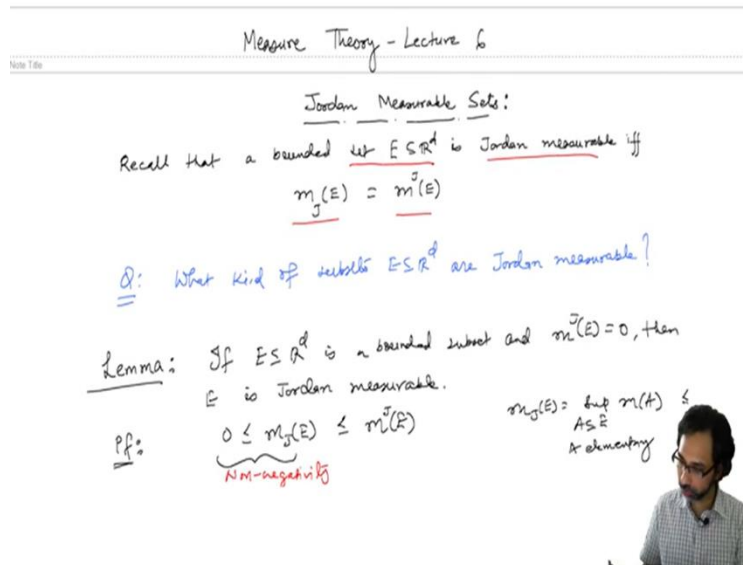 Measure Theory - Lecture 6
Note Title
Jordan Measurable Sets:
Recall that a bounded set E ⊆ ℝᵈ is Jordan measurable iff
m_J(E) = m^J(E)
Q: What kind of subsets E ⊆ ℝᵈ are Jordan measurable?
Lemma: If E ⊆ ℝᵈ is a bounded subset and m^J(E) = 0, then
E is Jordan measurable.
Pf: 0 ≤ m_J(E) ≤ m^J(E)
Non-negativity
m_J(E) = sup m(A) ≤
A ⊆ E
A elementary